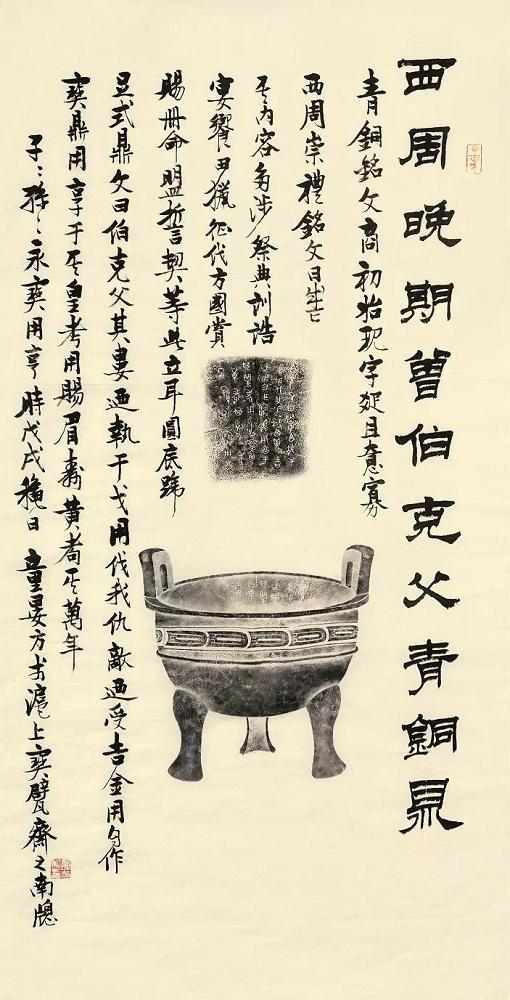 西周晚期曾伯克父青銅鼎
青銅銘文商初始現字趍且意寡
西周崇禮銘文日生亡
其內容多涉祭典訓誥
宴饗田獵征伐方國賞
賜冊命盟誓契等此立耳圓底蹄
足式鼎文曰伯克父其婁迺執干戈用伐我仇敵迺受吉金用自作
寶鼎用享于其皇考用賜眉壽黃耇其萬年
子〻孫〻永寶用亨時戊戌穐日童晏方於滬上寶甓齋之南牕